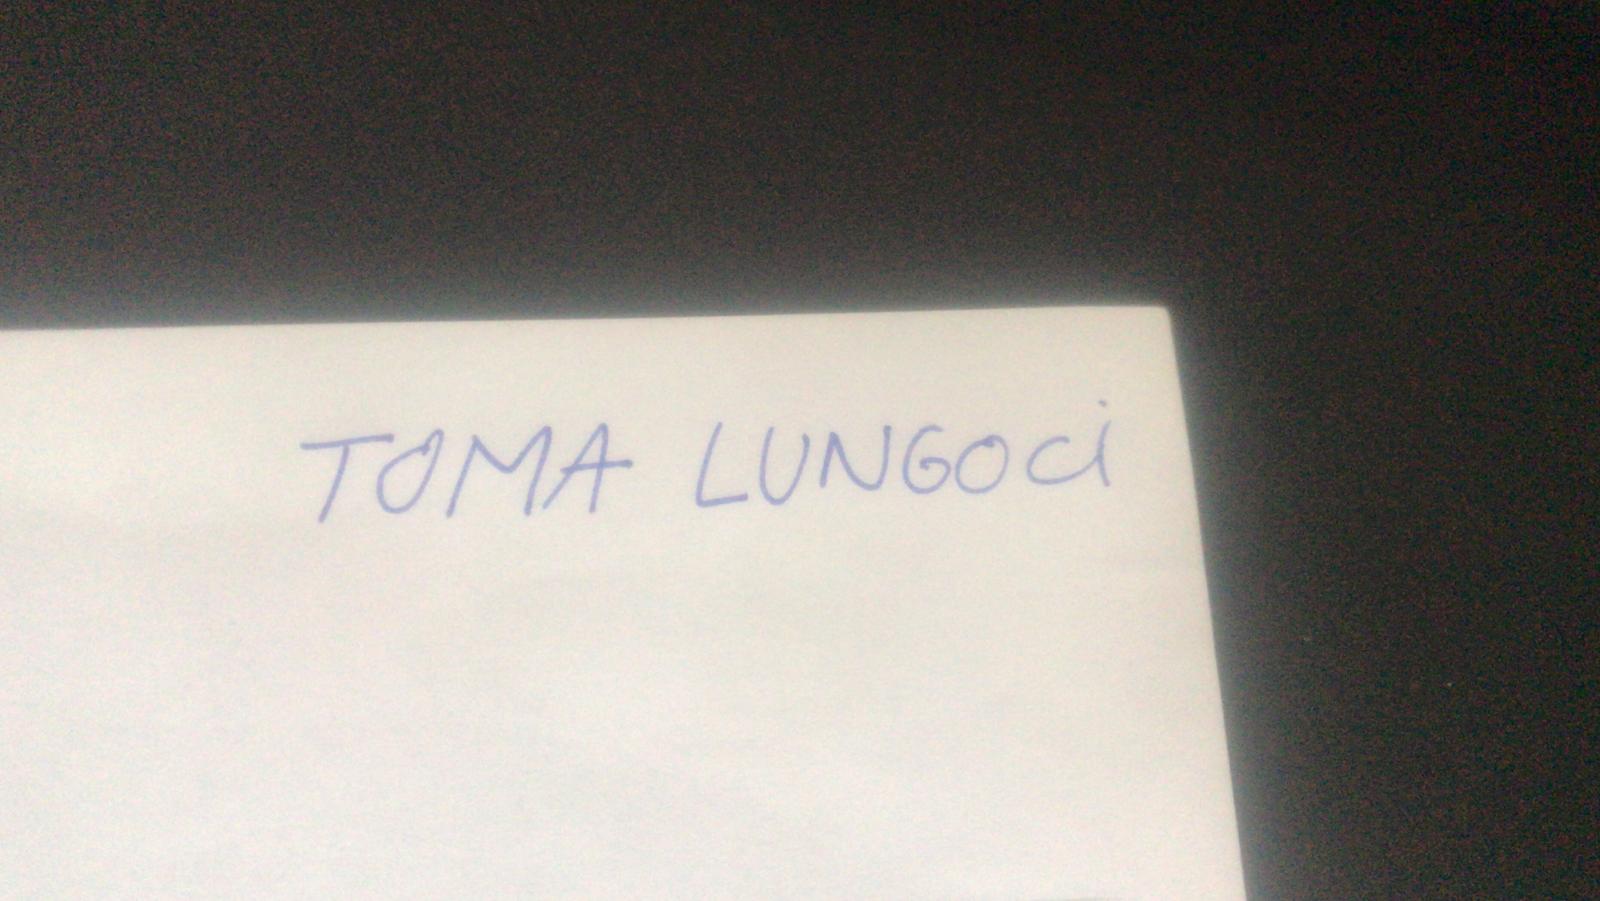 TOMA LUNGOCi